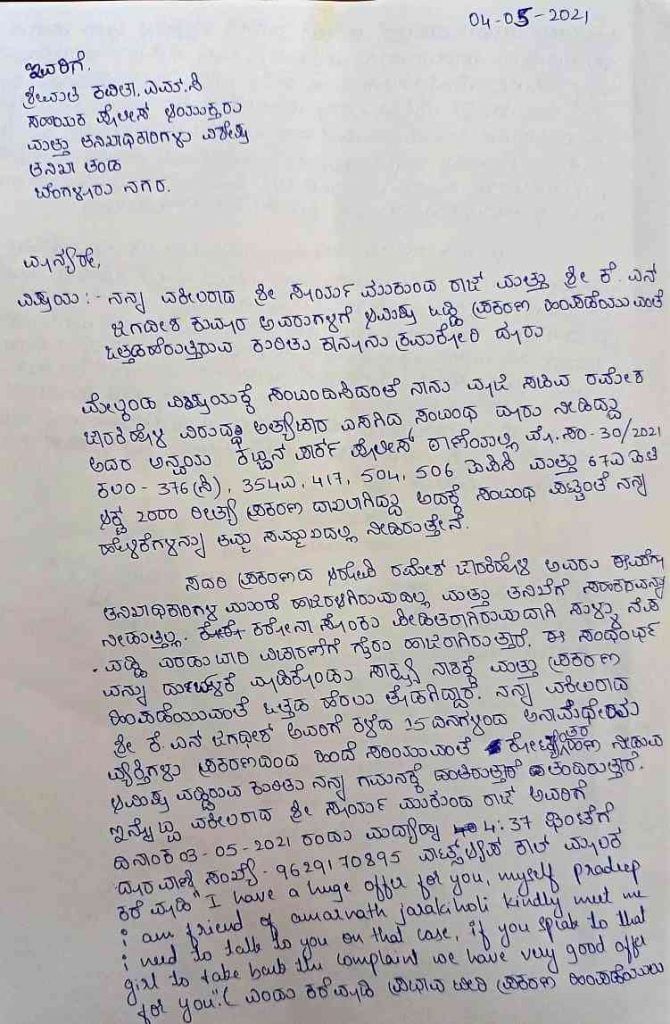 04-05-2021
ಇವರಿಗೆ,
ಶ್ರೀಮತಿ ಕವಿತಾ. ಎಮ್.ಸಿ
ಸಹಾಯಕ ಪೋಲೀಸ್ ಆಯುಕ್ತರು
ಮತ್ತು ತನಿಖಾಧಿಕಾರಿಗಳು ವಿಶೇಷ
ತನಿಖಾ ತಂಡ
ಬೆಂಗಳೂರು ನಗರ.
ಮಾನ್ಯರೇ,
ವಿಷಯ :- ನನ್ನ ವಕೀಲರಾದ ಶ್ರೀ ಸೂರ್ಯ ಮುಕುಂದ ರಾಜ್ ಮತ್ತು ಶ್ರೀ ಕೆ. ಎನ್
ಜಗದೀಶ ಕುಮಾರ ಅವರುಗಳಿಗೆ ಆಮಿಷ ಒಡ್ಡಿ ಪ್ರಕರಣ ಹಿಂಪಡೆಯುವಂತೆ
ಒತ್ತಡಹೇರುತ್ತಿರುವ ಕುರಿತು ಕಾನೂನು ಕ್ರಮಕೋರಿ ದೂರು
ಮೇಲ್ಕಂಡ ವಿಷಯಕ್ಕೆ ಸಂಬಂದಿಸಿದಂತೆ ನಾನು ಮಾಜಿ ಸಚಿವ ರಮೇಶ
ಜಾರಕಿಹೊಳಿ ವಿರುದ್ಧ ಅತ್ಯಾಚಾರ ಎಸಗಿದ ಸಂಬಂಧ ದೂರು ನೀಡಿದ್ದು
ಅದರ ಅನ್ವಯ ಕಬ್ಬನ್ ಪಾರ್ಕ್ ಪೋಲೀಸ್ ಠಾಣೆಯಲ್ಲಿ ಮೊ.ಸಂ- 30/2021
ಕಲಂ - 376(ಸಿ), 354ಎ, 417, 504, 506 ಐಪಿಸಿ ಮತ್ತು 67ಎ ಐಟಿ
ಆಕ್ಟ್ 2000 ರೀತ್ಯಾ ಪ್ರಕರಣ ದಾಖಲಾಗಿದ್ದು ಅದಕ್ಕೆ ಸಂಬಂಧ ಪಟ್ಟಂತೆ ನನ್ನ
ಹೇಳಿಕೆಗಳನ್ನು ತಮ್ಮ ಸಮ್ಮುಖದಲ್ಲಿ ನೀಡಿರುತ್ತೇನೆ.
ಸದರಿ ಪ್ರಕರಣದ ಆರೋಪಿ ರಮೇಶ್ ಜಾರಕಿಹೊಳಿ ಅವರು ಈವರೆಗೂ
ತನಿಖಾಧಿಕಾರಿಗಳ ಮುಂದೆ ಹಾಜರಾಗಿರುವುದಿಲ್ಲ ಮತ್ತು ತನಿಖೆಗೆ ಸಹಕಾರವನ್ನು
ನೀಡುತ್ತಿಲ್ಲ. ಕರೋನಾ ಸೋಂಕು ಪೀಡಿತರಾಗಿರುವುದಾಗಿ ಸುಳ್ಳು ನೆಪ
ಒಡ್ಡಿ ಎರಡು ಬಾರಿ ವಿಚಾರಣೆಗೆ ಗೈರು ಹಾಜರಾಗಿರುತ್ತಾರೆ. ಈ ಸಂಧರ್ಭ
ವನ್ನು ದುರ್ಬಳಕೆ ಮಾಡಿಕೊಂಡು ಸಾಕ್ಷ್ಯ ನಾಶಕ್ಕೆ ಮತ್ತು ಪ್ರಕರಣ
ಹಿಂಪಡೆಯುವಂತೆ ಒತ್ತಡ ಹೇರಲು ತೊಡಗಿದ್ದಾರೆ. ನನ್ನ ವಕೀಲರಾದ
ಶ್ರೀ ಕೆ. ಎನ್ ಜಗದೀಶ್ ಅವರಿಗೆ ಕಳೆದ 15 ದಿನಗಳಿಂದ ಅನಾಮಧೇಯ
ವ್ಯಕ್ತಿಗಳು ಪ್ರಕರಣದಿಂದ ಹಿಂದೆ ಸರಿಯುವಂತೆ ಕೋಟ್ಯಾಂತರ ಹಣ ನೀಡುವ
ಆಮಿಷ ಒಡ್ಡಿರುವ ಕುರಿತು ನನ್ನ ಗಮನಕ್ಕೆ ತಂದಿರುತ್ತಾರೆ.
ಇನ್ನೊಬ್ಬ ವಕೀಲರಾದ ಶ್ರೀ ಸೂರ್ಯ ಮುಕುಂದ ರಾಜ್ ಅವರಿಗೆ
ದಿನಾಂಕ 03-05-2021 ರಂದು ಮಧ್ಯಾಹ್ನ 4:37 ಘಂಟೆಗೆ
ದೂರವಾಣಿ ಸಂಖ್ಯೆ - 9629170895 ವಾಟ್ಸ್ಆಪ್ ಕಾಲ್ ಮೂಲಕ
ಕರೆ ಮಾಡಿ "I have a huge offer for you, myself pradeep
i am friend of amarnath jarakiholi kindly meet me
i need to talk to you on that case, if you speak to that
girl to take back the complaint we have very good offer
for you".( ಎಂದು ಕರೆಮಾಡಿ ಪ್ರಭಾವ ಬೀರಿ ಪ್ರಕರಣ ಹಿಂಪಡೆಯಲು